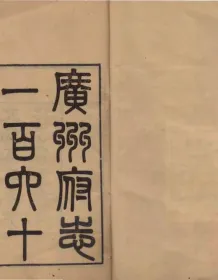 廣州府志
一百六十